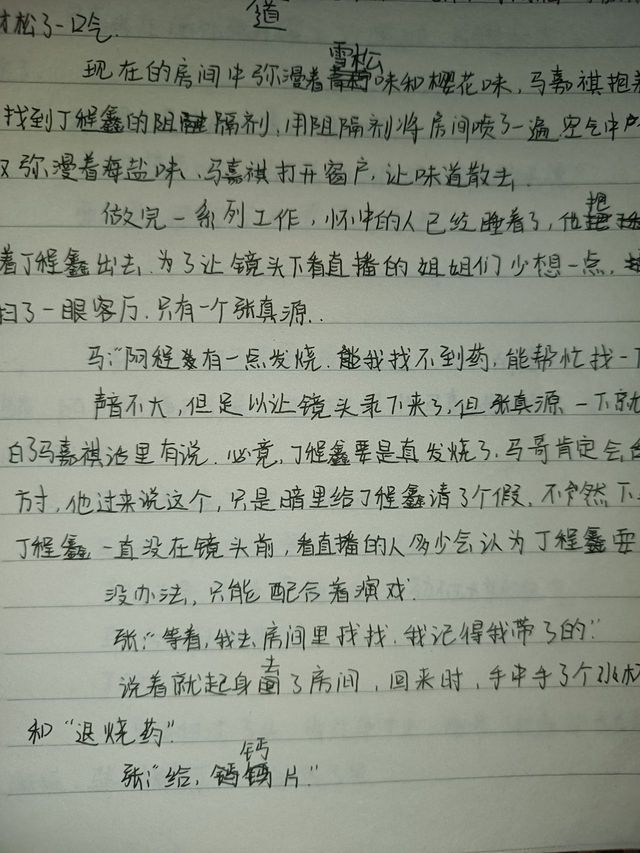 才松了一口气.
道
现在的房间中弥漫着雪松味和樱花味，马嘉祺抱着
找到丁程鑫的阻隔剂，用阻隔剂将房间喷了一遍，空气中
又弥漫着海盐味，马嘉祺打开窗户，让味道散去.
做完一系列工作，怀中的人已经睡着了，他把
着丁程鑫出去，为了让镜头下看直播的姐姐们少想一点，
扫了一眼客厅，只有一个张真源..
马:"阿程有一点发烧，我找不到药，能帮忙找一下
声音不大，但足以让镜头录下来了，但张真源一下就
白了马嘉祺话里有说，必竟，丁程鑫要是真发烧了，马哥肯定会
方寸，他过来说这个，只是暗里给丁程鑫请了个假，不然下
丁程鑫一直没在镜头前，看直播的人多少会认为丁程鑫耍
没办法，只能配合着演戏.
张:"等着，我去房间里找找，我记得我带了的."
说着就起身去了房间，回来时，手中手了个水杯
和"退烧药"
张:"给，钙片."